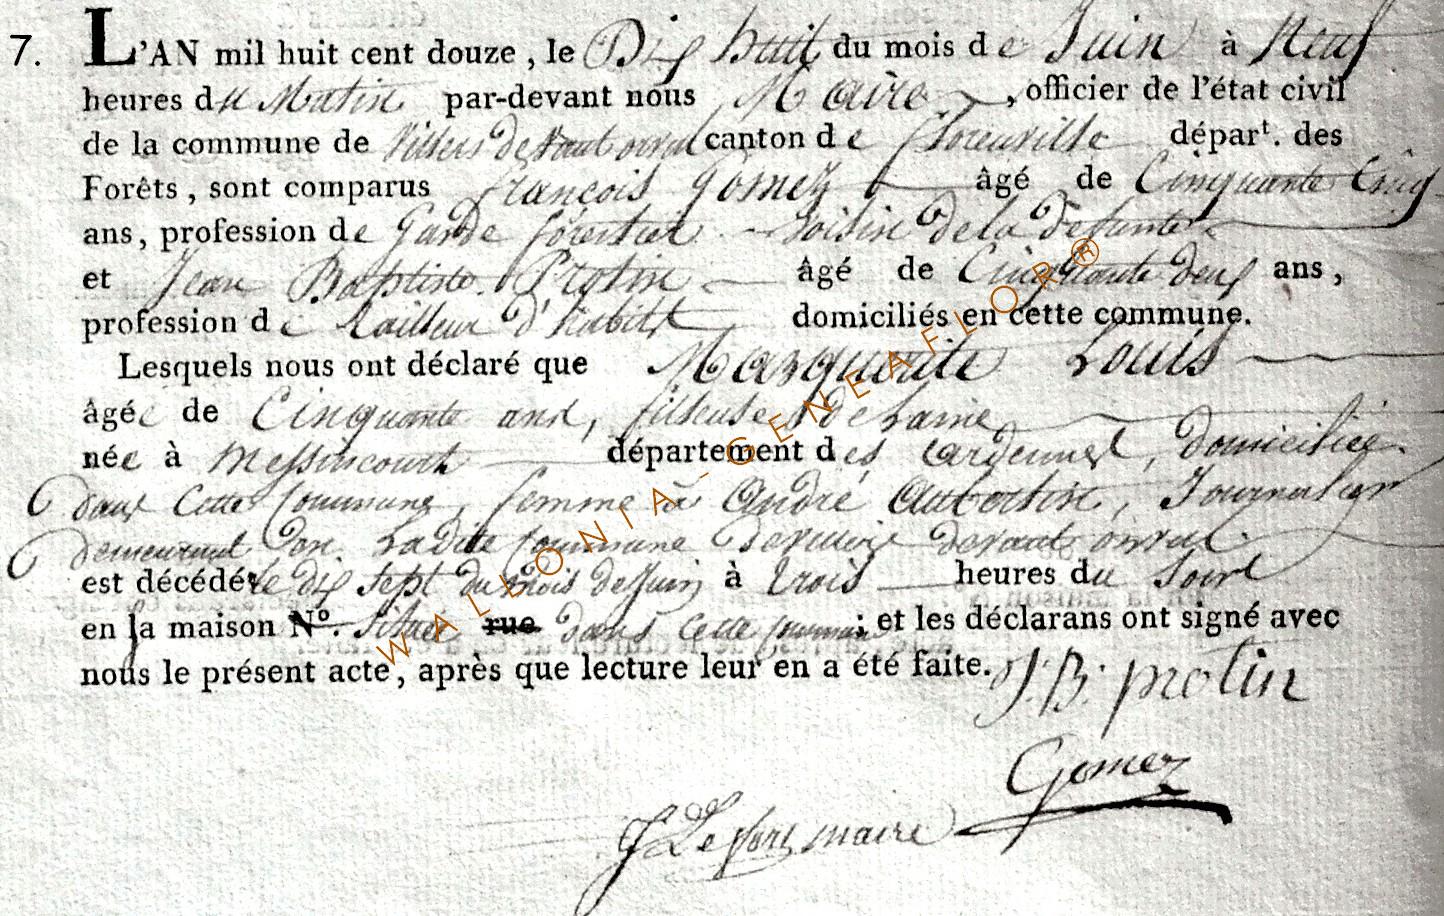 7. L'AN mil huit cent douze, le Dix huit du mois de Juin à Neuf
heures du Matin par-devant nous Maire, officier de l'état civil
de la commune de Villers devant orval canton de florenville départ. des
Forêts, sont comparus françois Gomez âgé de Cinquante Cinq
ans, profession de Garde forestier voisin de la Defunte
et Jean Baptiste Protin âgé de Cinquante deux ans,
profession de tailleur d'habits domiciliés en cette commune.
Lesquels nous ont déclaré que Marguerite Louis
âgée de Cinquante ans, fileuse de Laine
née à Messincourt département des ardennes, domiciliée
dans Cette Commune, femme à andré Journalier
demeurant en Ladite Commune devant orval
est décédée le dix sept du mois de Juin à trois heures du soir
en la maison N°. située rue dans cette commune; et les déclarans ont signé avec
nous le présent acte, après que lecture leur en a été faite.
J. B. protin
Gomez
J Lefort maire
WALLONIA-GENEAFLOR®